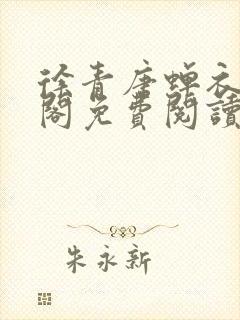 徐青唐蟬衣
閣免費閱讀
朱永新